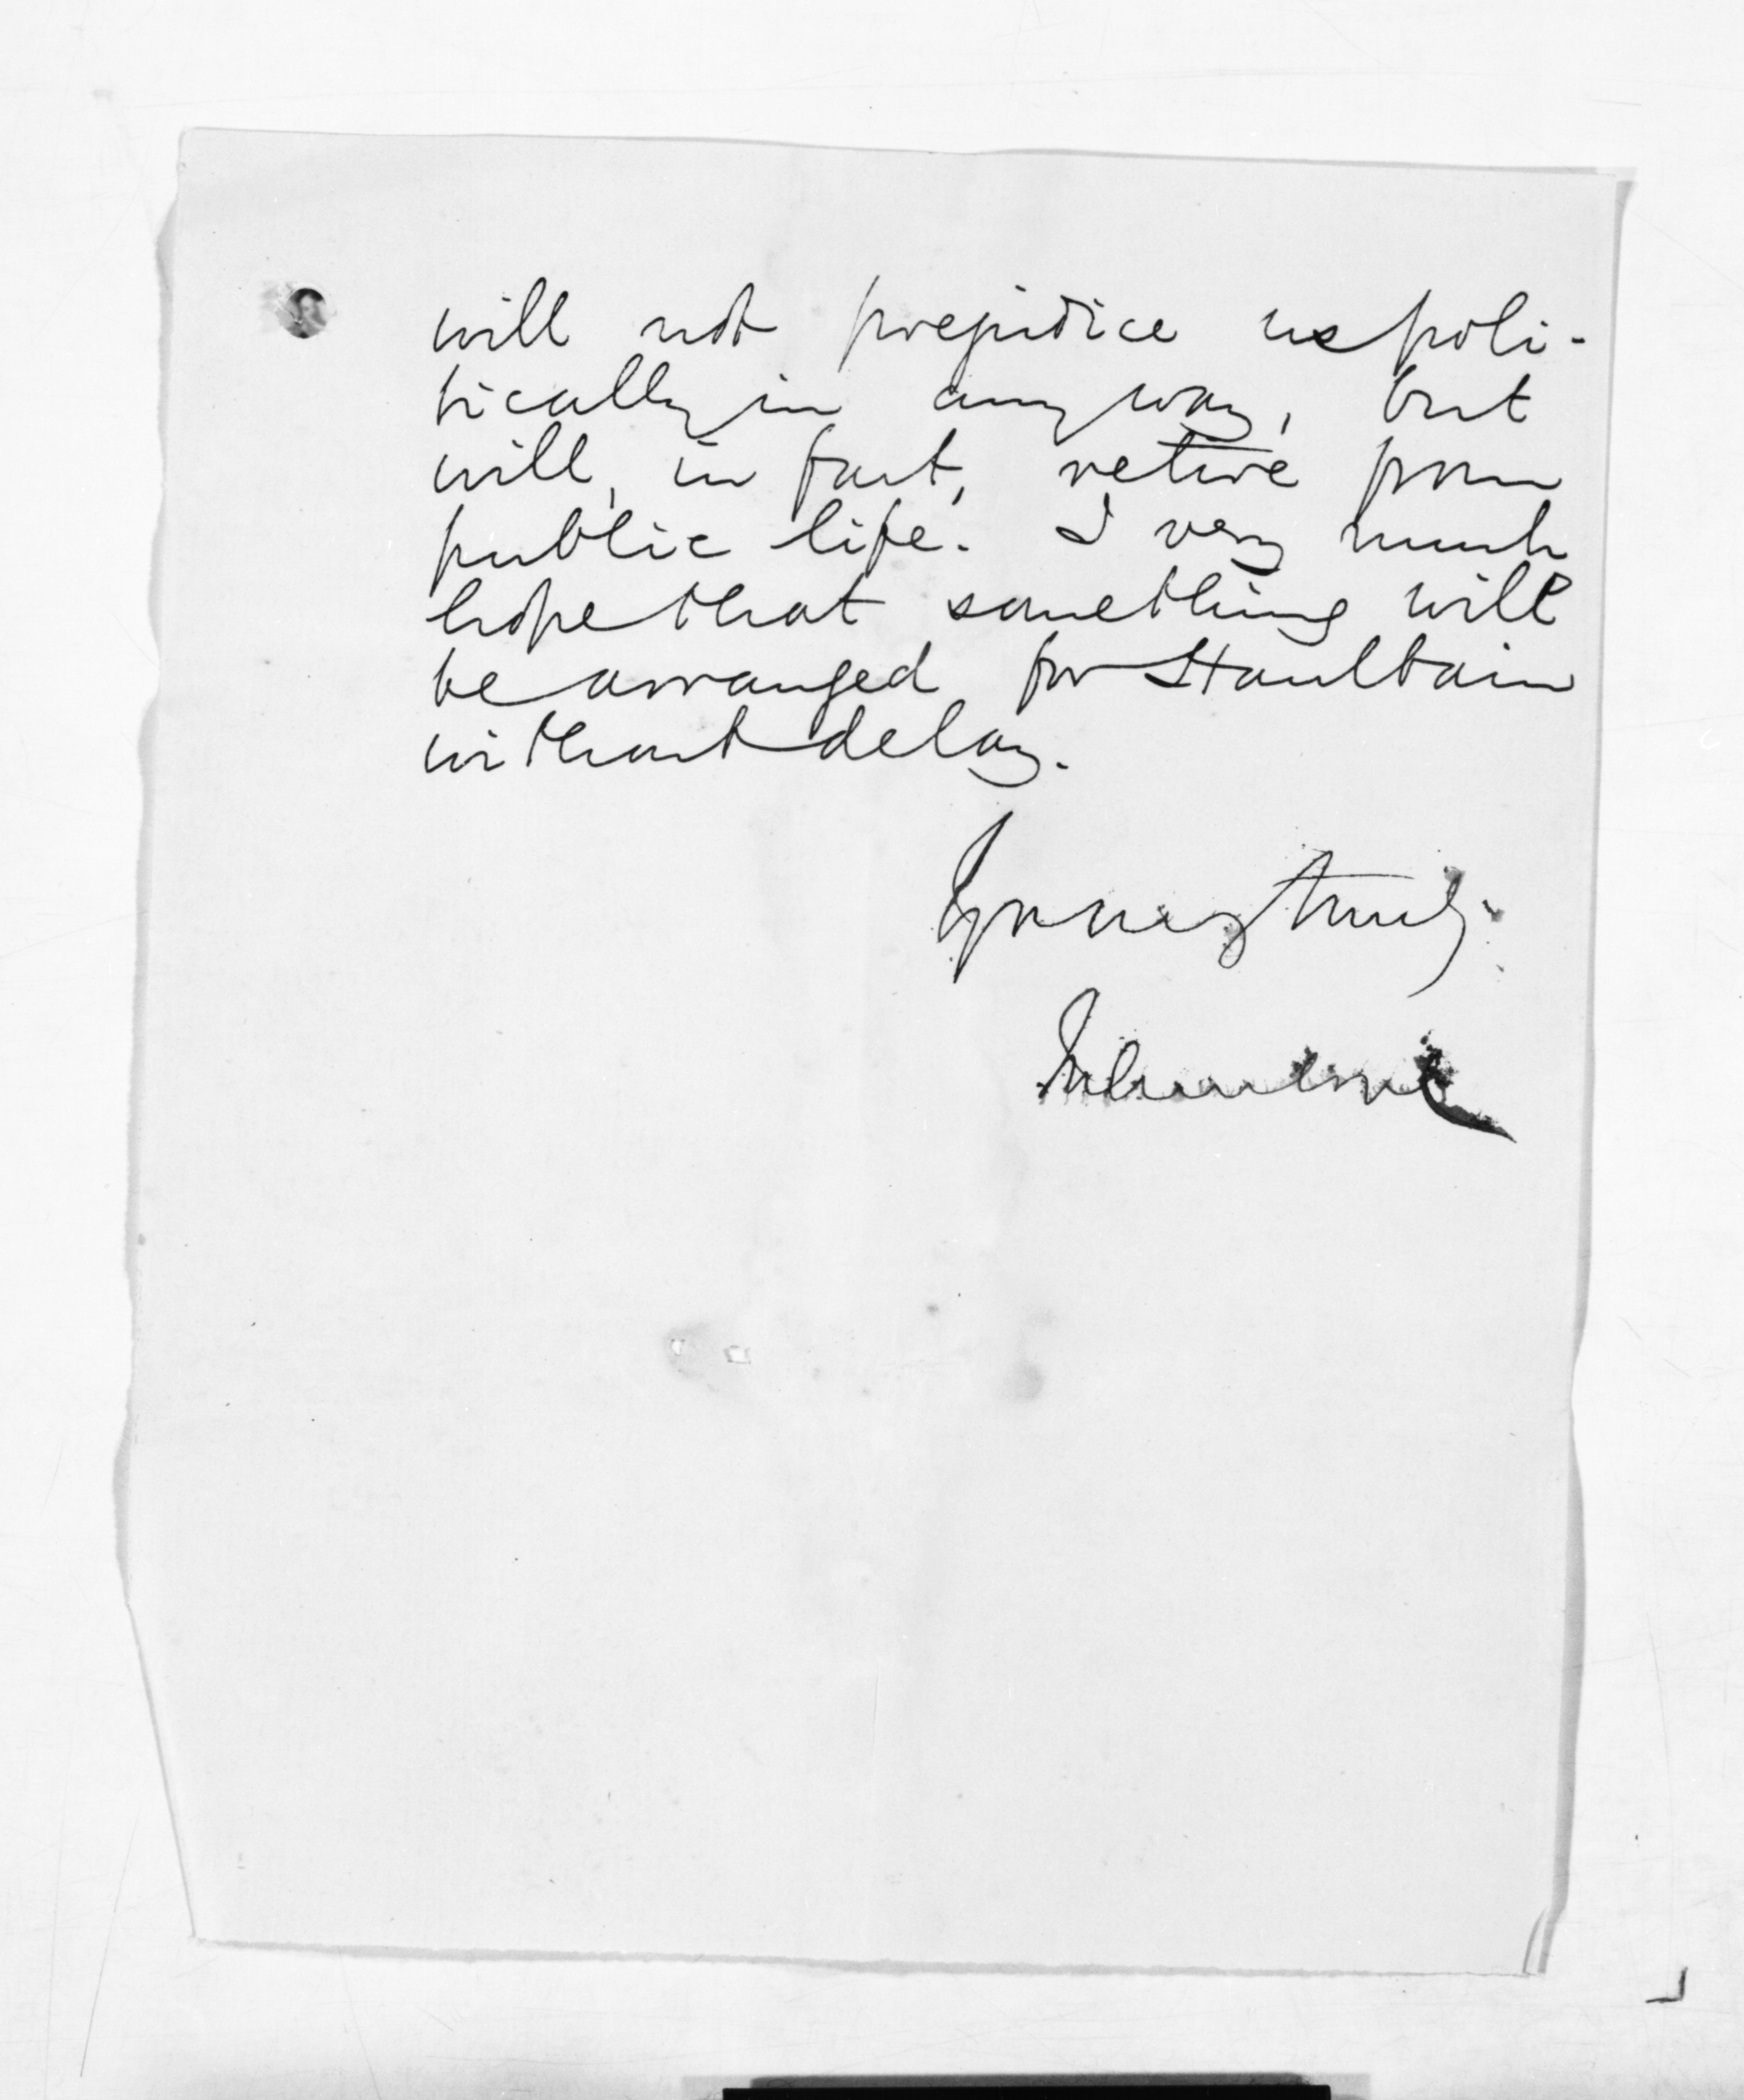 will not prejudice us poli-
tically in any way, but
will, in fact, retire from
public life. I very much
hope that something will
be arranged for Haultain
without delay.
Yours truly.